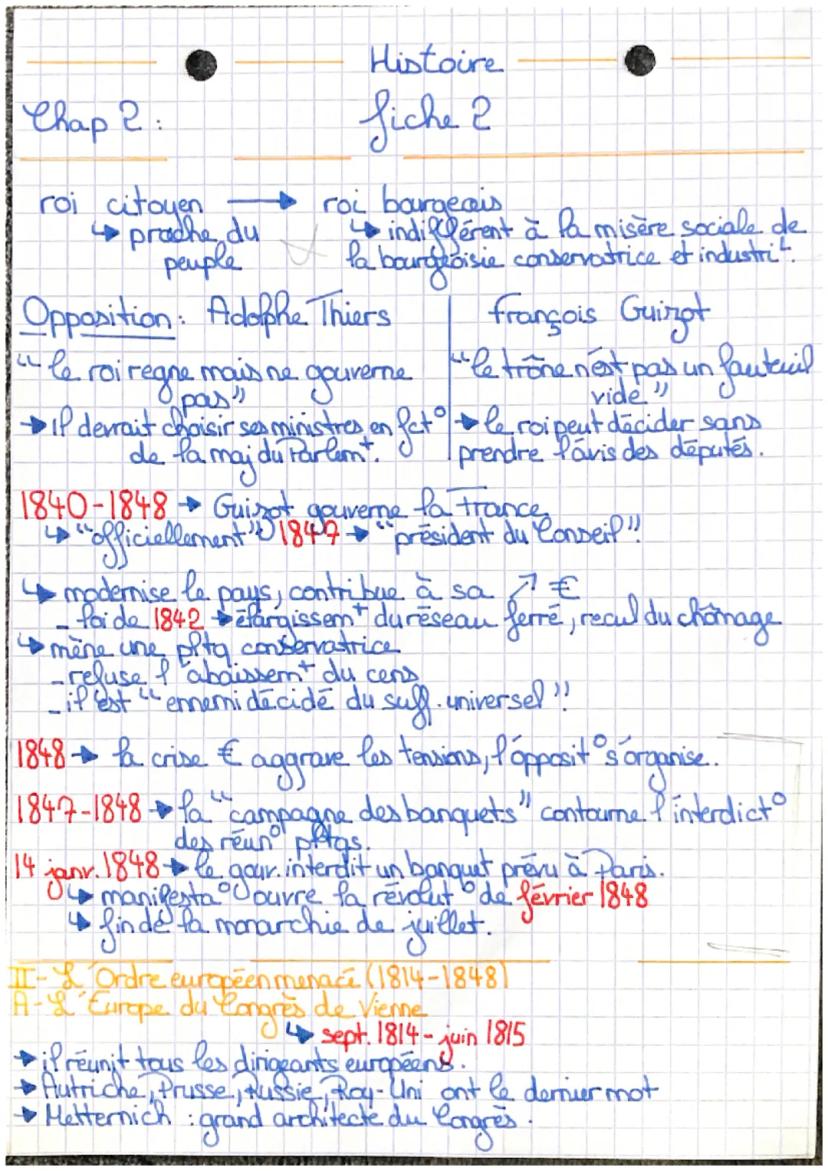 Histoire
Chap 2 : fiche 2
roi citoyen → roi bourgeois
↳ proche du peuple
↳ indifférent à la misère sociale de
la bourgeoisie conservatrice et industri^L.
Opposition : Adolphe Thiers
"le roi regne mais ne gouverne
pas"
→ il devrait choisir ses ministres en fct°
de la maj du Parlem^t.
François Guizot
"le trône n'est pas un fauteuil
vide"
→ le roi peut décider sans
prendre l'avis des députés.
1840-1848 → Guizot gouverne la France
↳ "officiellement" 1847 → "président du Conseil"
↳ modernise le pays, contribue à sa ↗ €
- loi de 1842 → élargissem^t du réseau ferré, recul du chômage
↳ mène une pltq conservatrice
- refuse l'abaissem^t du cens
- il est "ennemi décidé du suff. universel"
1848 → la crise € aggrave les tensions, l'opposit° s'organise.
1847-1848 → la "campagne des banquets" contourne l'interdict°
des réun° pltqs.
14 janv. 1848 → le gouv. interdit un banquet prévu à Paris.
↳ manifesta° ouvre la révolut° de février 1848
↳ fin de la monarchie de juillet.
II- L'Ordre européen menacé (1814-1848)
A- L'Europe du Congrès de Vienne
↳ sept. 1814 - juin 1815
→ il réunit tous les dirigeants européens.
→ Autriche, Prusse, Russie, Roy-Uni ont le dernier mot
→ Metternich : grand architecte du Congrès.